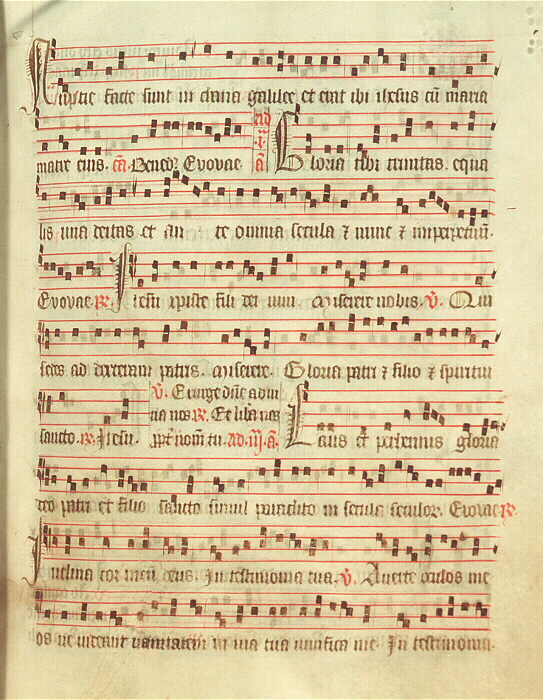 Nuptie facte sunt in chana galilee et erat ibi ihesus cū maria
matre eius. cā. Bened. Evovae. ad .i. a Gloria tibi trinitas. equa
lis una deitas et an te omnia secula ⁊ nunc ⁊ inperpetuū.
Evovae. R. Ihesu xpiste fili dei vivi. Miserere nobis. V. Qui
sedes ad dexteram patris. Miserere. Gloria patri ⁊ filio ⁊ spiritui
sancto. R. Ihesu. V. Exurge dñe adiu
va nos R. Et libā nos
ppt nom̄ tu. Ad .iij. a. Laus et perhennis gloria
deo patri et filio sancto simul paraclito in secula seculor. Evovae R.
Inclina cor meū deus. In testimonia tua. V. Averte oculos me
os ne videant vanitatem in via tua vivifica me. In testimonia.